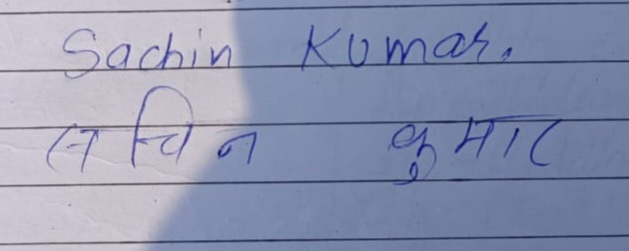 Sachin Kumar.
सचिन कुमार